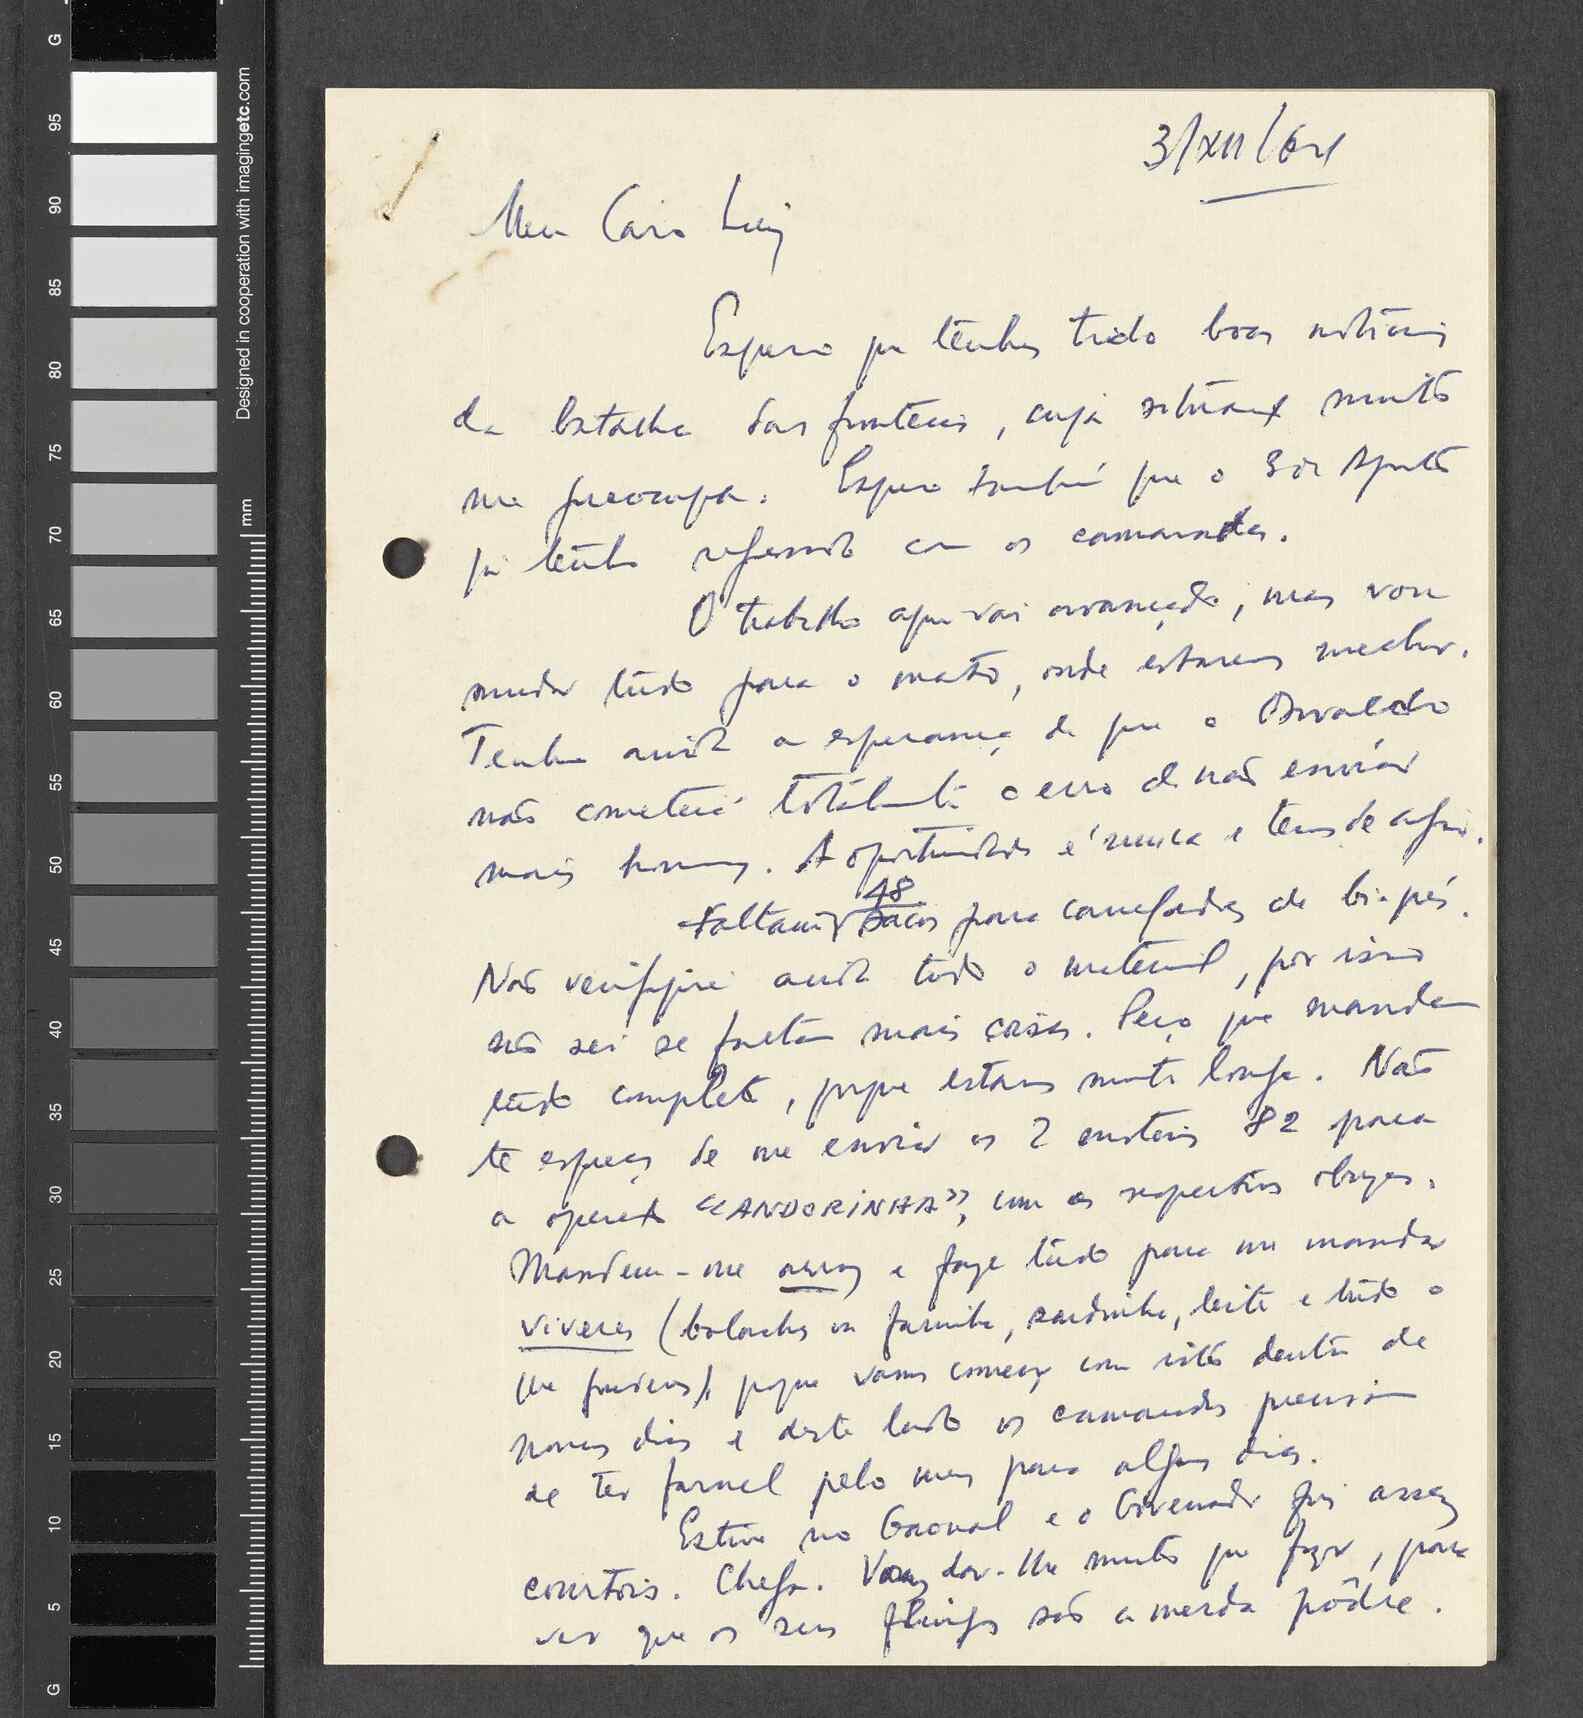 3/XII/64
Meu Caro Luiz
Espero que tenhas tido boas notícias
da batalha das fronteiras, cuja situação muito
me preocupa. Espero também que o 3 de Agosto
já tenha regressado com os camaradas.
O trabalho aqui vai avançado, mas vou
mudar tudo para o mato, onde estaremos melhor.
Tenho ainda a esperança de que o Osvaldo
não cometerá totalmente o erro de não enviar
mais homens. A oportunidade é única e temos de agir.
Faltam 48 sacos para carregadores de bi-pés.
Não verifiquei ainda todo o material, por isso
não sei se faltam mais coisas. Peço que mandem
tudo completo, porque estamos muito longe. Não
te esqueças de me enviar os 2 morteiros 82 para
a operação "ANDORINHA", com as respectivas obuzes.
Mandem-me arroz e faze tudo para me mandar
viveres (bolachas ou farinha, sardinha, leite e tudo o
que puderes), porque vamos começar com isto dentro de
novos dias e deste lado os camaradas precisam
de ter farnel pelo menos para alguns dias.
Estive no Gaoual e o Governador foi assez
courtois. Chega. Vamos dar-lhe muito que fazer, para
ver que os seus são a merda pôdre.
Designed in cooperation with imagingetc.com
mm
G
95
90
85
80
75
70
65
60
55
50
45
40
35
30
25
20
15
10
5
G